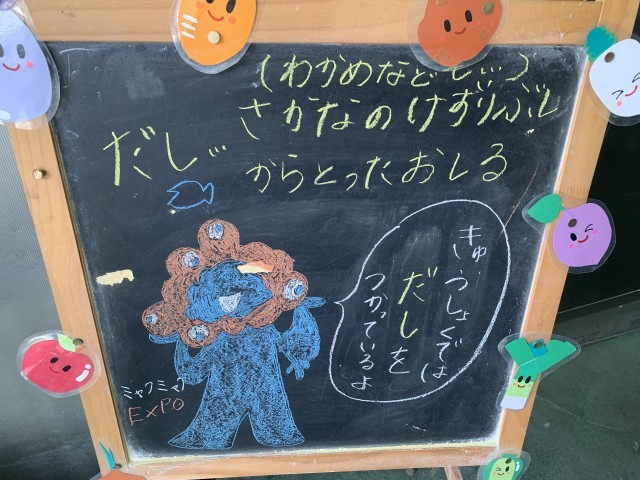 (わかめなど
さかなのけずりぶし
だし
からとったおしる
きゅうしょくでは
だしを
つかっているよ
ミャクミャク
EXPO